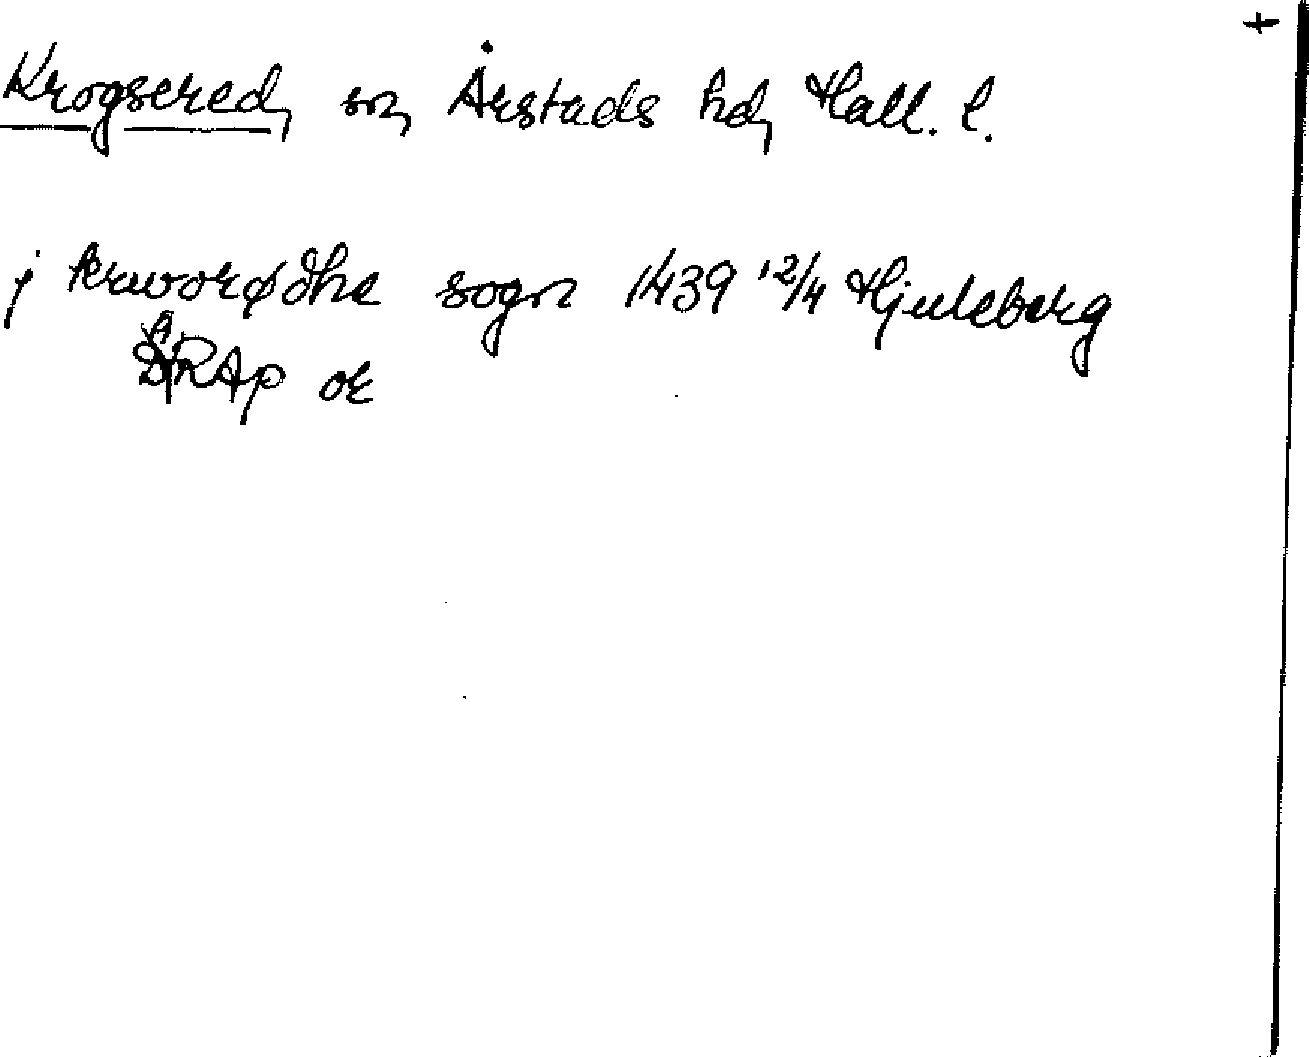 +
Krogsered, sn, Årstads hd, Hall. l.
j krworødhe sogn 1439 12/4 Hjuleberg
SRAp or